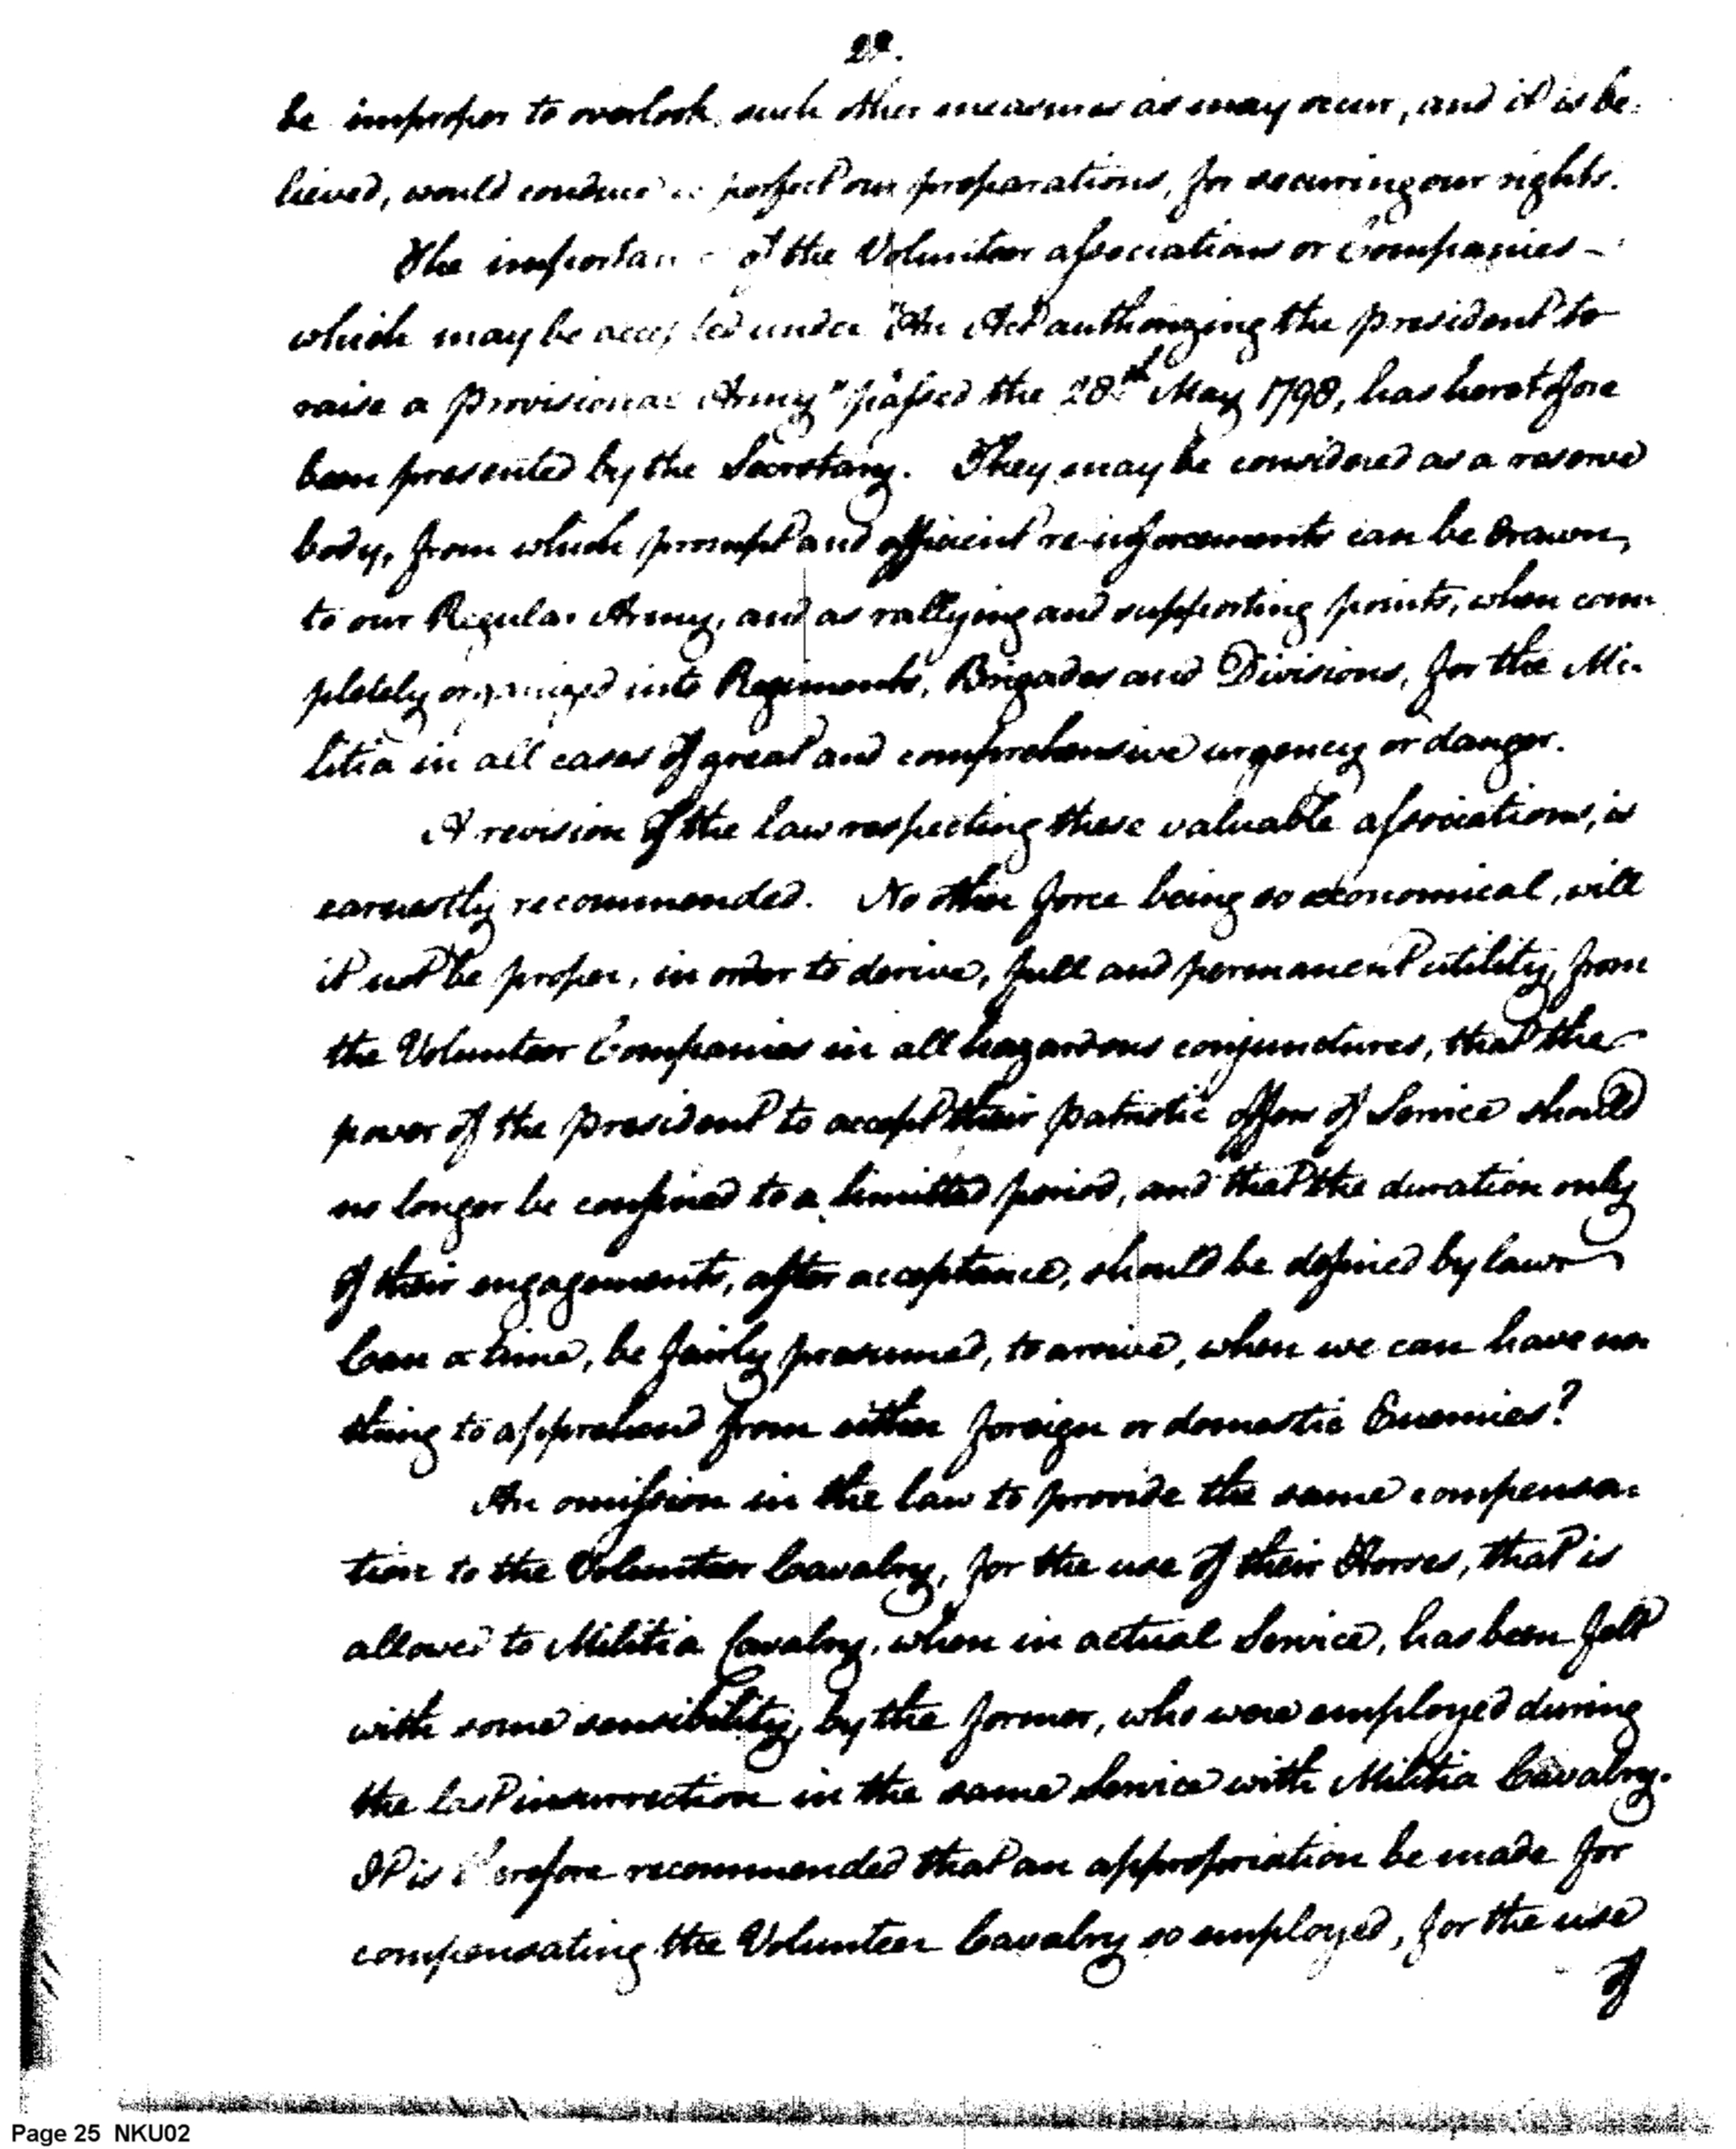 22.
be improper to overlook, such other measures as may occur, and it is be-
lieved, would conduce perfect our preparations, for securing our rights.
The of the Volunteer associations or Companies -
which may be under "An Act authorizing the president to
raise a provisional Army" passed the 28th May 1798, has heretofore
been presented by the Secretary. They may be considered as a reserve
body, from which prompt and efficient re-inforcements can be drawn,
to our Regular Army, and as rallying and supporting points, when com
pletely organized into Regiments, Brigades and Divisions, for the Mi-
litia in all cases of great and comprehensive urgency or danger.
A revision of the law respecting these valuable associations, is
earnestly recommended. No other force being so economical, will
it not be proper, in order to derive, full and permanent utility, from
the Volunteer Companies in all hazardous conjunctures, that the
power of the president to accept their patriotic offers of Service should
no longer be confined to a limitted period, and that the duration only
of their engagements, after acceptance, should be defined by law
Can a time, be fairly presumed, to arrive, when we can have no
thing to apprehend from either foreign or domestic Enemies?
An omission in the law to provide the same compensa-
tion to the Volunteer Cavalry, for the use of their Horses, that is
allowed to Militia Cavalry, when in actual Service, has been felt
with some sensibility, by the former, who were employed during
the last insurrection in the same Service with Militia Cavalry.
It is therefore recommended that an appropriation be made for
compensating the Volunteer Cavalry so employed, for the use
of
Page 25 NKU02